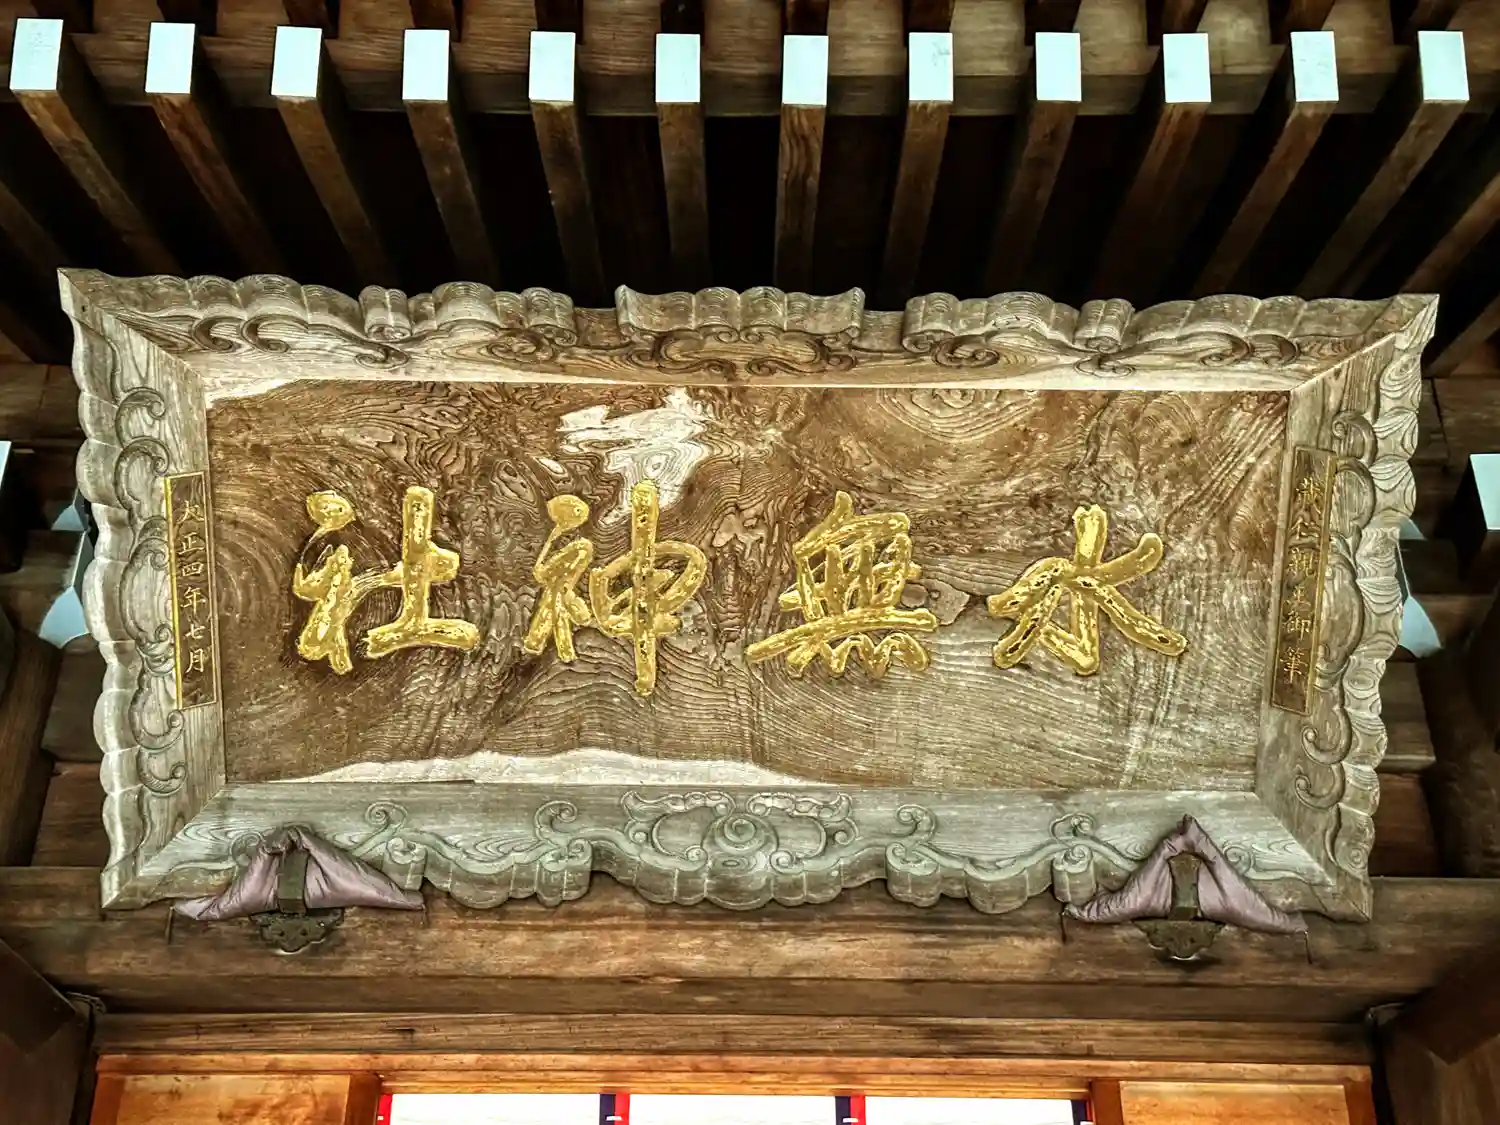 水無神社
載仁親王御筆
大正四年七月